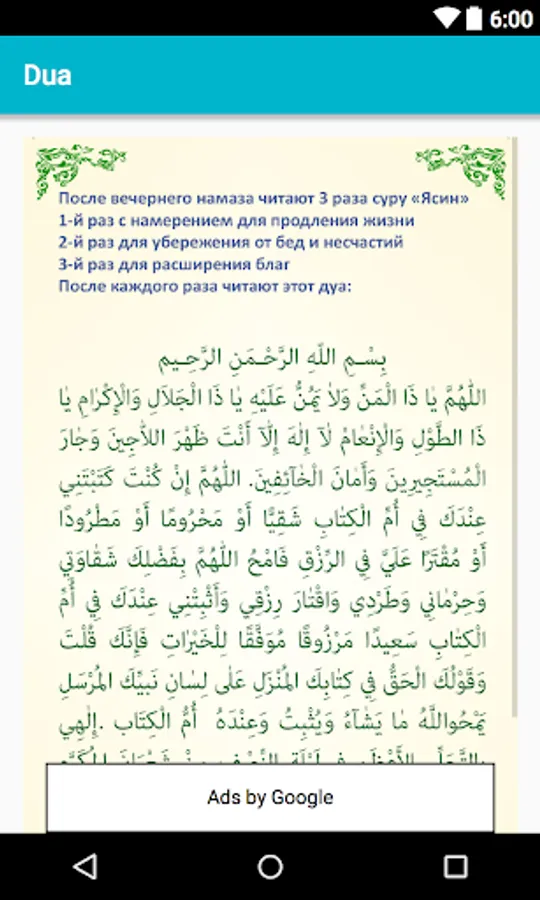 6:00
Dua
После вечернего намаза читают 3 раза суру «Ясин»
1-й раз с намерением для продления жизни
2-й раз для убережения от бед и несчастий
3-й раз для расширения благ
После каждого раза читают этот дуа:
بِسْـمِ اللّٰهِ الرَّحْـمَنِ الرَّحِـيم
اَللّٰهُمَّ يٰا ذَا الْمَنِّ وَلاٰ يَمُنُّ عَلَيْهِ يٰا ذَا الْجَلاَلِ وَالْإِكْرٰامِ يٰا
ذَا الطَّوْلِ وَالْإِنْعٰامْ لآ إِلٰهَ إِلآَّ أَنْتَ ظَهْرَ اللاَّجِينَ وَجٰارَ
الْمُسْتَجِيرِينَ وَأَمٰانَ الْخٰآئِفِينَ. اَللّٰهُمَّ إِنْ كُنْتَ كَتَبْتَنِي
عِنْدَكَ فِي أُمِّ الْكِتٰابِ شَقِيًّا أَوْ مَحْرُومًا أَوْ مَطْرُودًا
أَوْ مُقْتَرًا عَلَيَّ فِي الرِّزْقِ فَامْحُ اللّٰهُمَّ بِفَضْلِكَ شَقٰاوَتِي
وَحِرْمٰانِي وَطَرْدِي وَاقْتٰارَ رِزْقِي وَأَثْبِتْنِي عِنْدَكَ فِي أُمِّ
الْكِتٰابِ سَعِيدًا مَرْزُوقًا مُوَفَّقًا لِلْخَيْرَاتِ فَإِنَّكَ قُلْتَ
وَقَوْلُكَ الْحَقُّ فِي كِتٰابِكَ الْمُنْزَلِ عَلٰى لِسٰانِ نَبِيِّكَ الْمُرْسَلِ
يَمْحُواللَّهُ مٰا يَشٰآءُ وَيُثْبِتُ وَعِنْدَهُ أُمُّ الْكِتَابِ .إِلٰهِي
Ads by Google